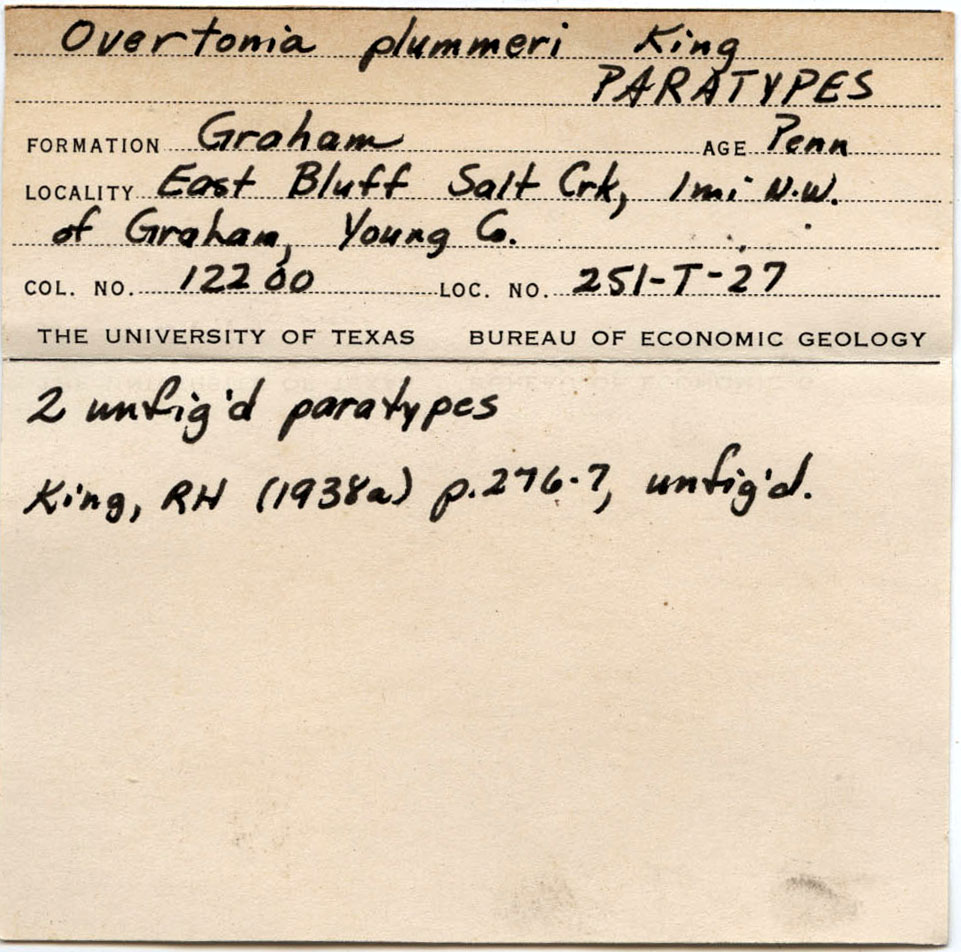 Overtonia plummeri King
PARATYPES
FORMATION Graham AGE Penn
LOCALITY East Bluff Salt Crk, 1mi N.W.
of Graham, Young Co.
COL. NO. 12200 LOC. NO. 251-T-27
THE UNIVERSITY OF TEXAS BUREAU OF ECONOMIC GEOLOGY
2 unfig'd paratypes
King, RH (1938a) p.276-7, unfig'd.